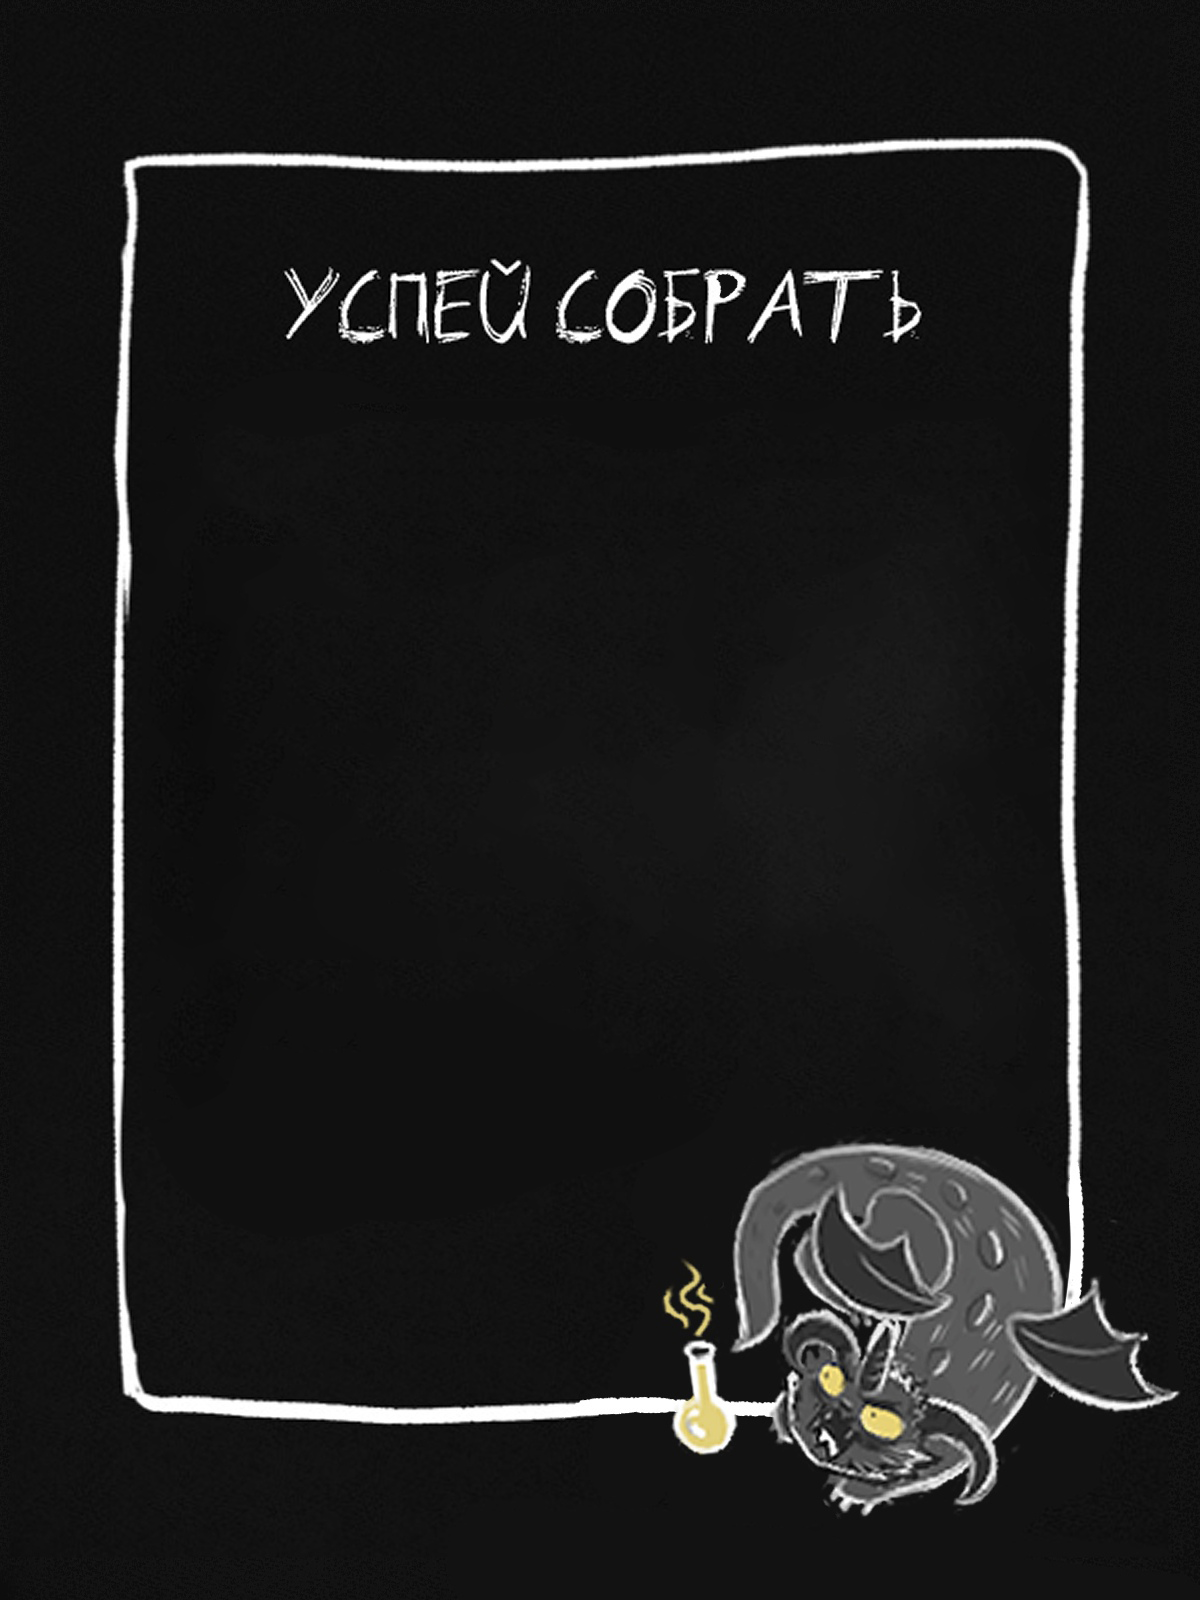 УСПЕЙ СОБРАТЬ